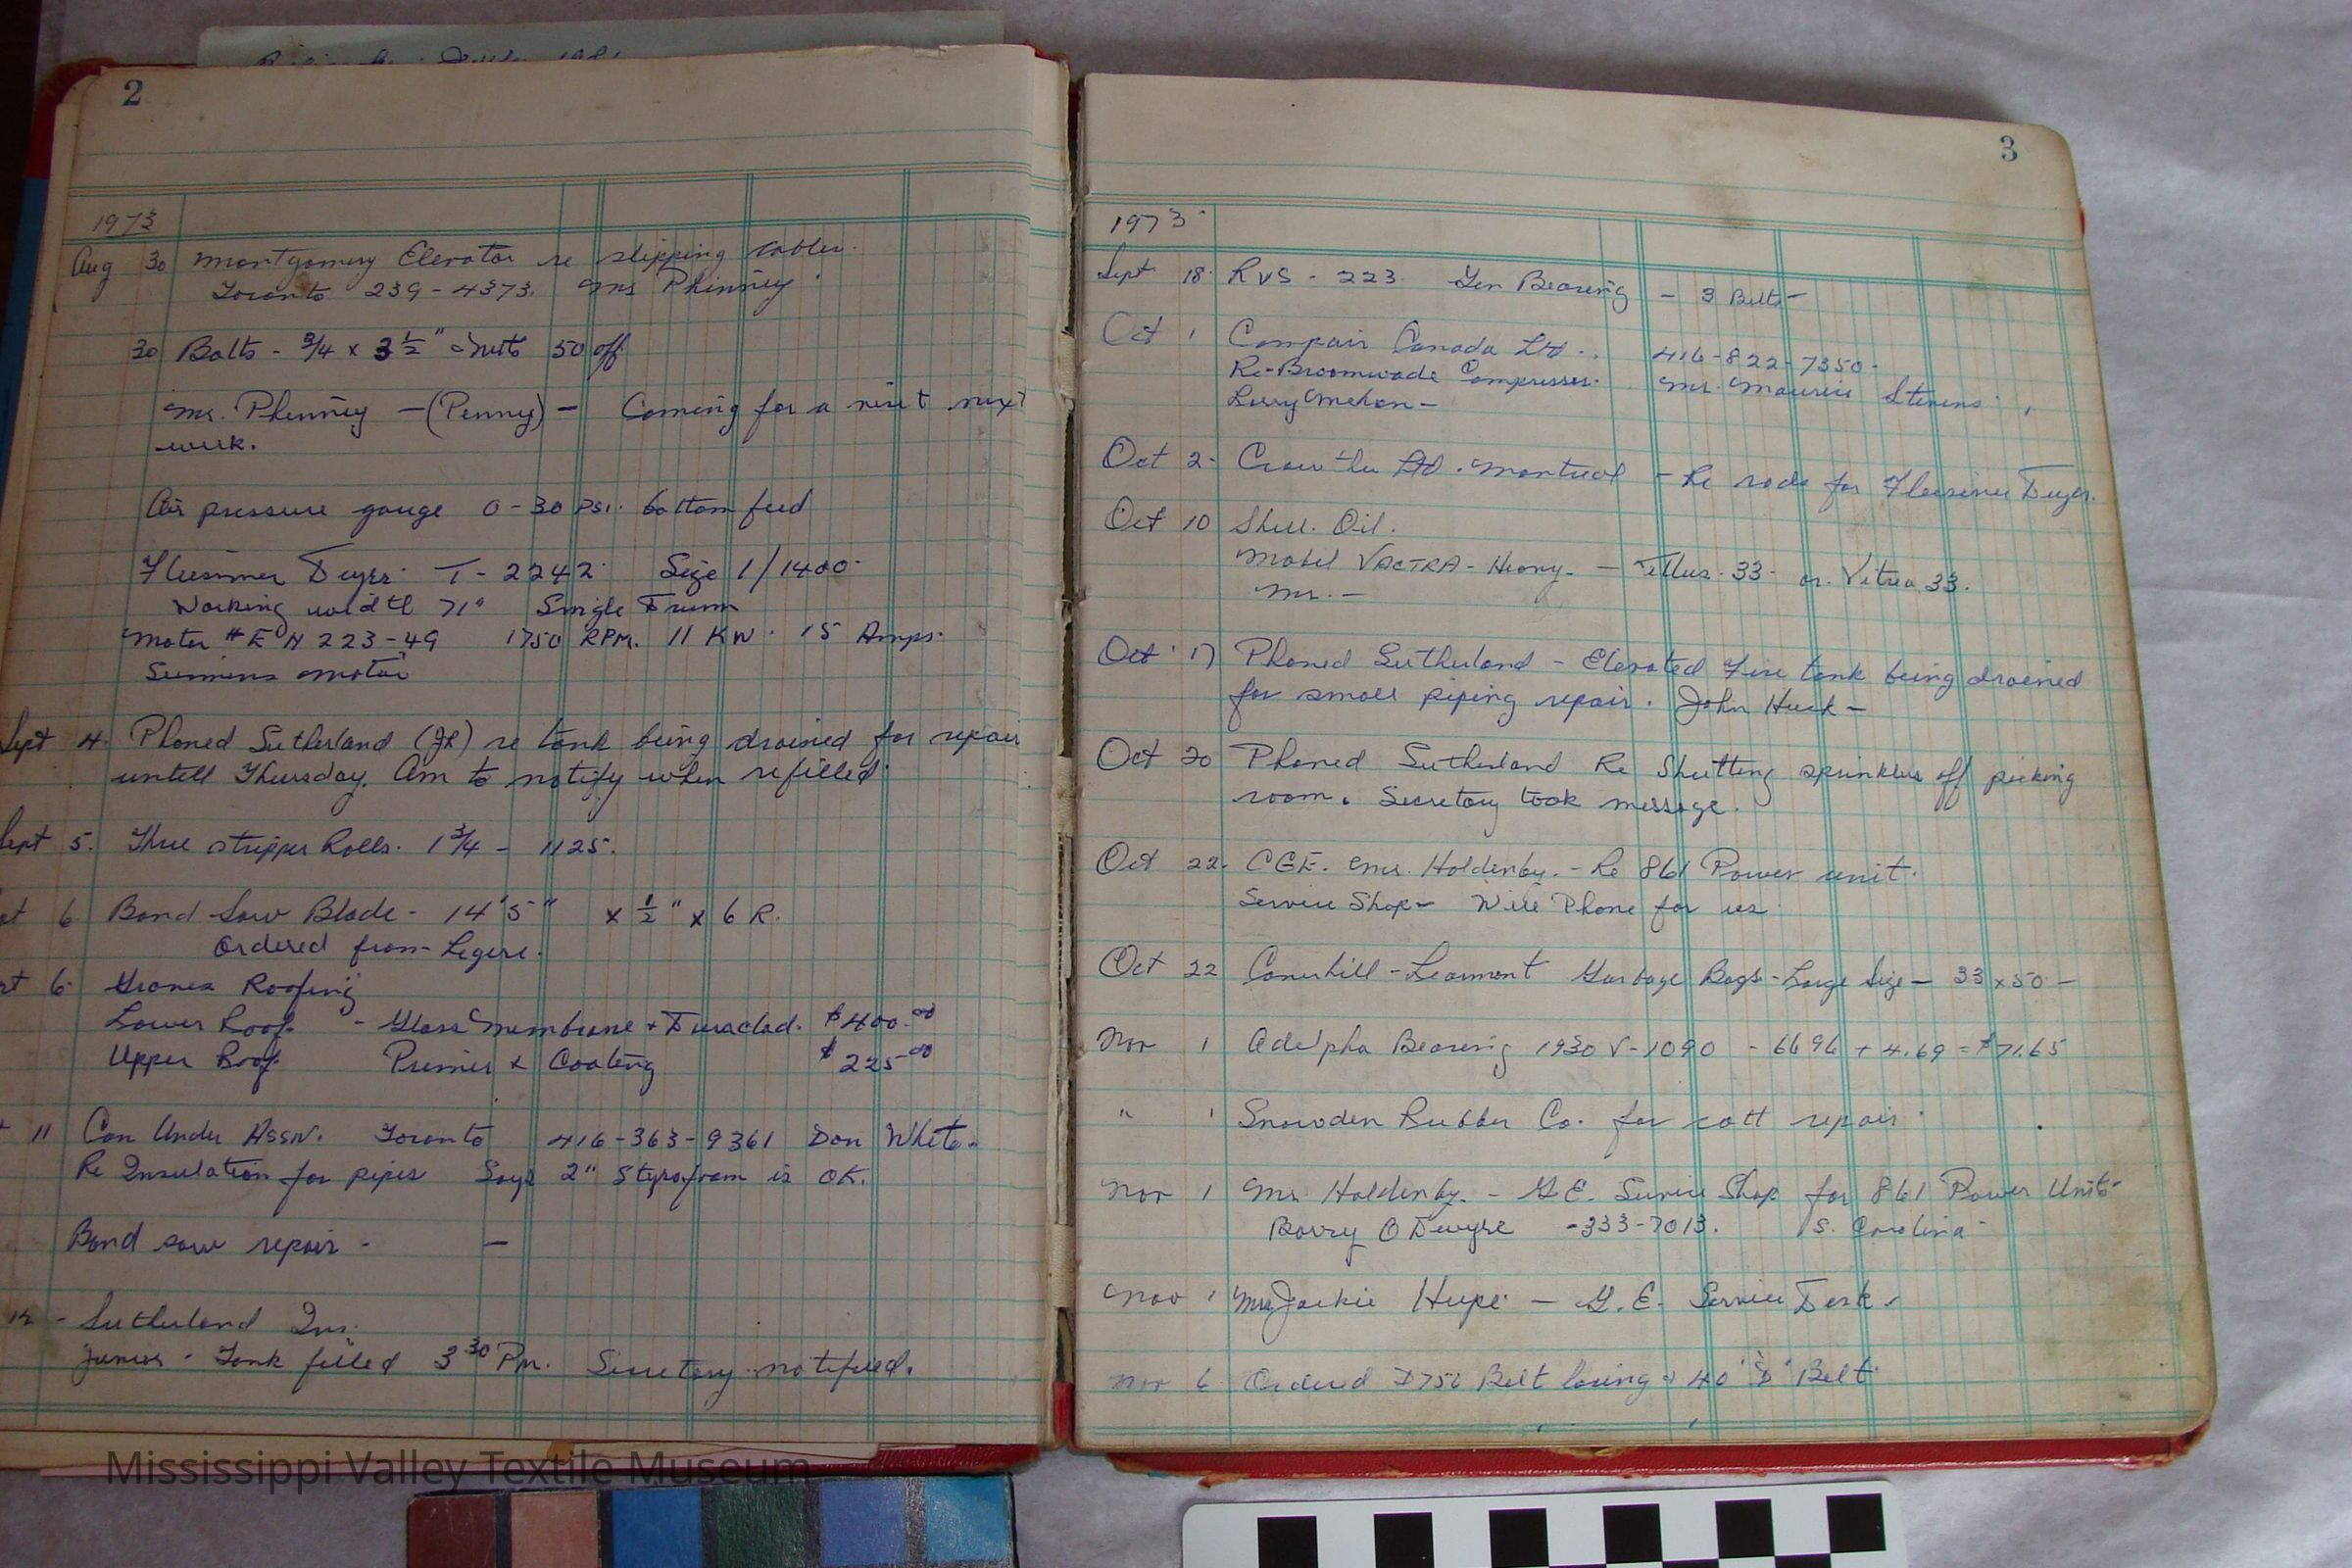 2
1973
Aug 30 Montgomery Elevator re slipping cables.
Toronto 239-4373. Mr Phinney
30 Bolts - 3/4 x 3 1/2" Nuts 50 off
Mr. Phinney - (Penny) - Coming for a visit next
week.
Air pressure gauge 0-30 PSI. bottom feed
Fleissner Dryer T-2242 Size 1/1400
Working width 71" Single Drum
Motor # E N 223-49 1750 RPM. 11 KW. 15 Amps.
Siemens Motor
Sept 4. Phoned Sutherland (JR) re tank being drained for repair
untill Thursday. Am to notify when refilled.
Sept 5. Three stripper Rolls. 1 3/4 - 1125.
6 Band Saw Blade - 14'5" x 1/2" x 6 R.
Ordered from Legere.
6 Roofing
Lower Roof - Glass membrane + Duraclad. $400.00
Upper Roof Primer & Coating $225.00
11 Can Under Assn. Toronto 416-363-9361 Don White-
Re Insulation for pipes Says 2" Styrofoam is OK.
Band saw repair - -
Sutherland Ins.
Junior - Tank filled 3 30 Pm. Secretary notified.
3
1973
Sept 18 RVS - 223 Bearing - 3 Belts -
Oct 1 Compair Canada Ltd. 416-822-7350.
Re-Broomwade Compressor. Mr. Maurice Stevens
Larry Mehan -
Oct 2 Ltd. Montreal - Re rods for Fleissner Dryer.
Oct 10 Shell Oil.
Mobil VACTRA - Heavy - Tellus 33 or Vitrea 33.
Mr. -
Oct 17 Phoned Sutherland - Elevated Fire tank being drained
for small piping repair. John Huck -
Oct 20 Phoned Sutherland Re Shutting sprinklers off picking
room. Secretary took message.
Oct 22. CGE. Mr. Holdenby. - Re 861 Power unit.
Service Shop - Will Phone for us
Oct 22 Garbage Bags - Large Size - 33 x 50 -
Nov 1 Adelpha Bearing 1930 V-1090 - 6696 + 4.69 = $71.65
" 1 Snowden Rubber Co. for repair
Nov 1 Mr Holdenby. - G E. Service Shop for 861 Power Unit-
Barry O Dwyre - 333-7013. S. Carolina
Nov 1 Mrs Jackie - G. E. Service Desk.
Nov 6 Ordered D750 Belt lacing & 40' "D" Belt
Mississippi Valley Textile Museum